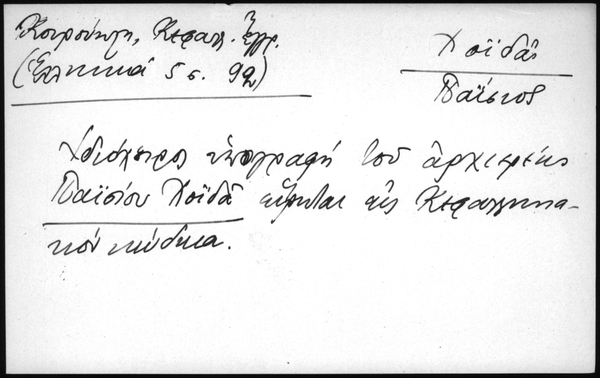 Κουρούκλη, Κεφαλ. Ἔγγρ.
(Ἑλληνικά 5 σ. 92)
Χοϊδᾶς
Παΐσιος
Ἰδιόχειρος ὑπογραφή τοῦ ἀρχιερέως
Παϊσίου Χοϊδᾶ εὕρηται εἰς Κεφαλληνια-
κόν κώδικα.